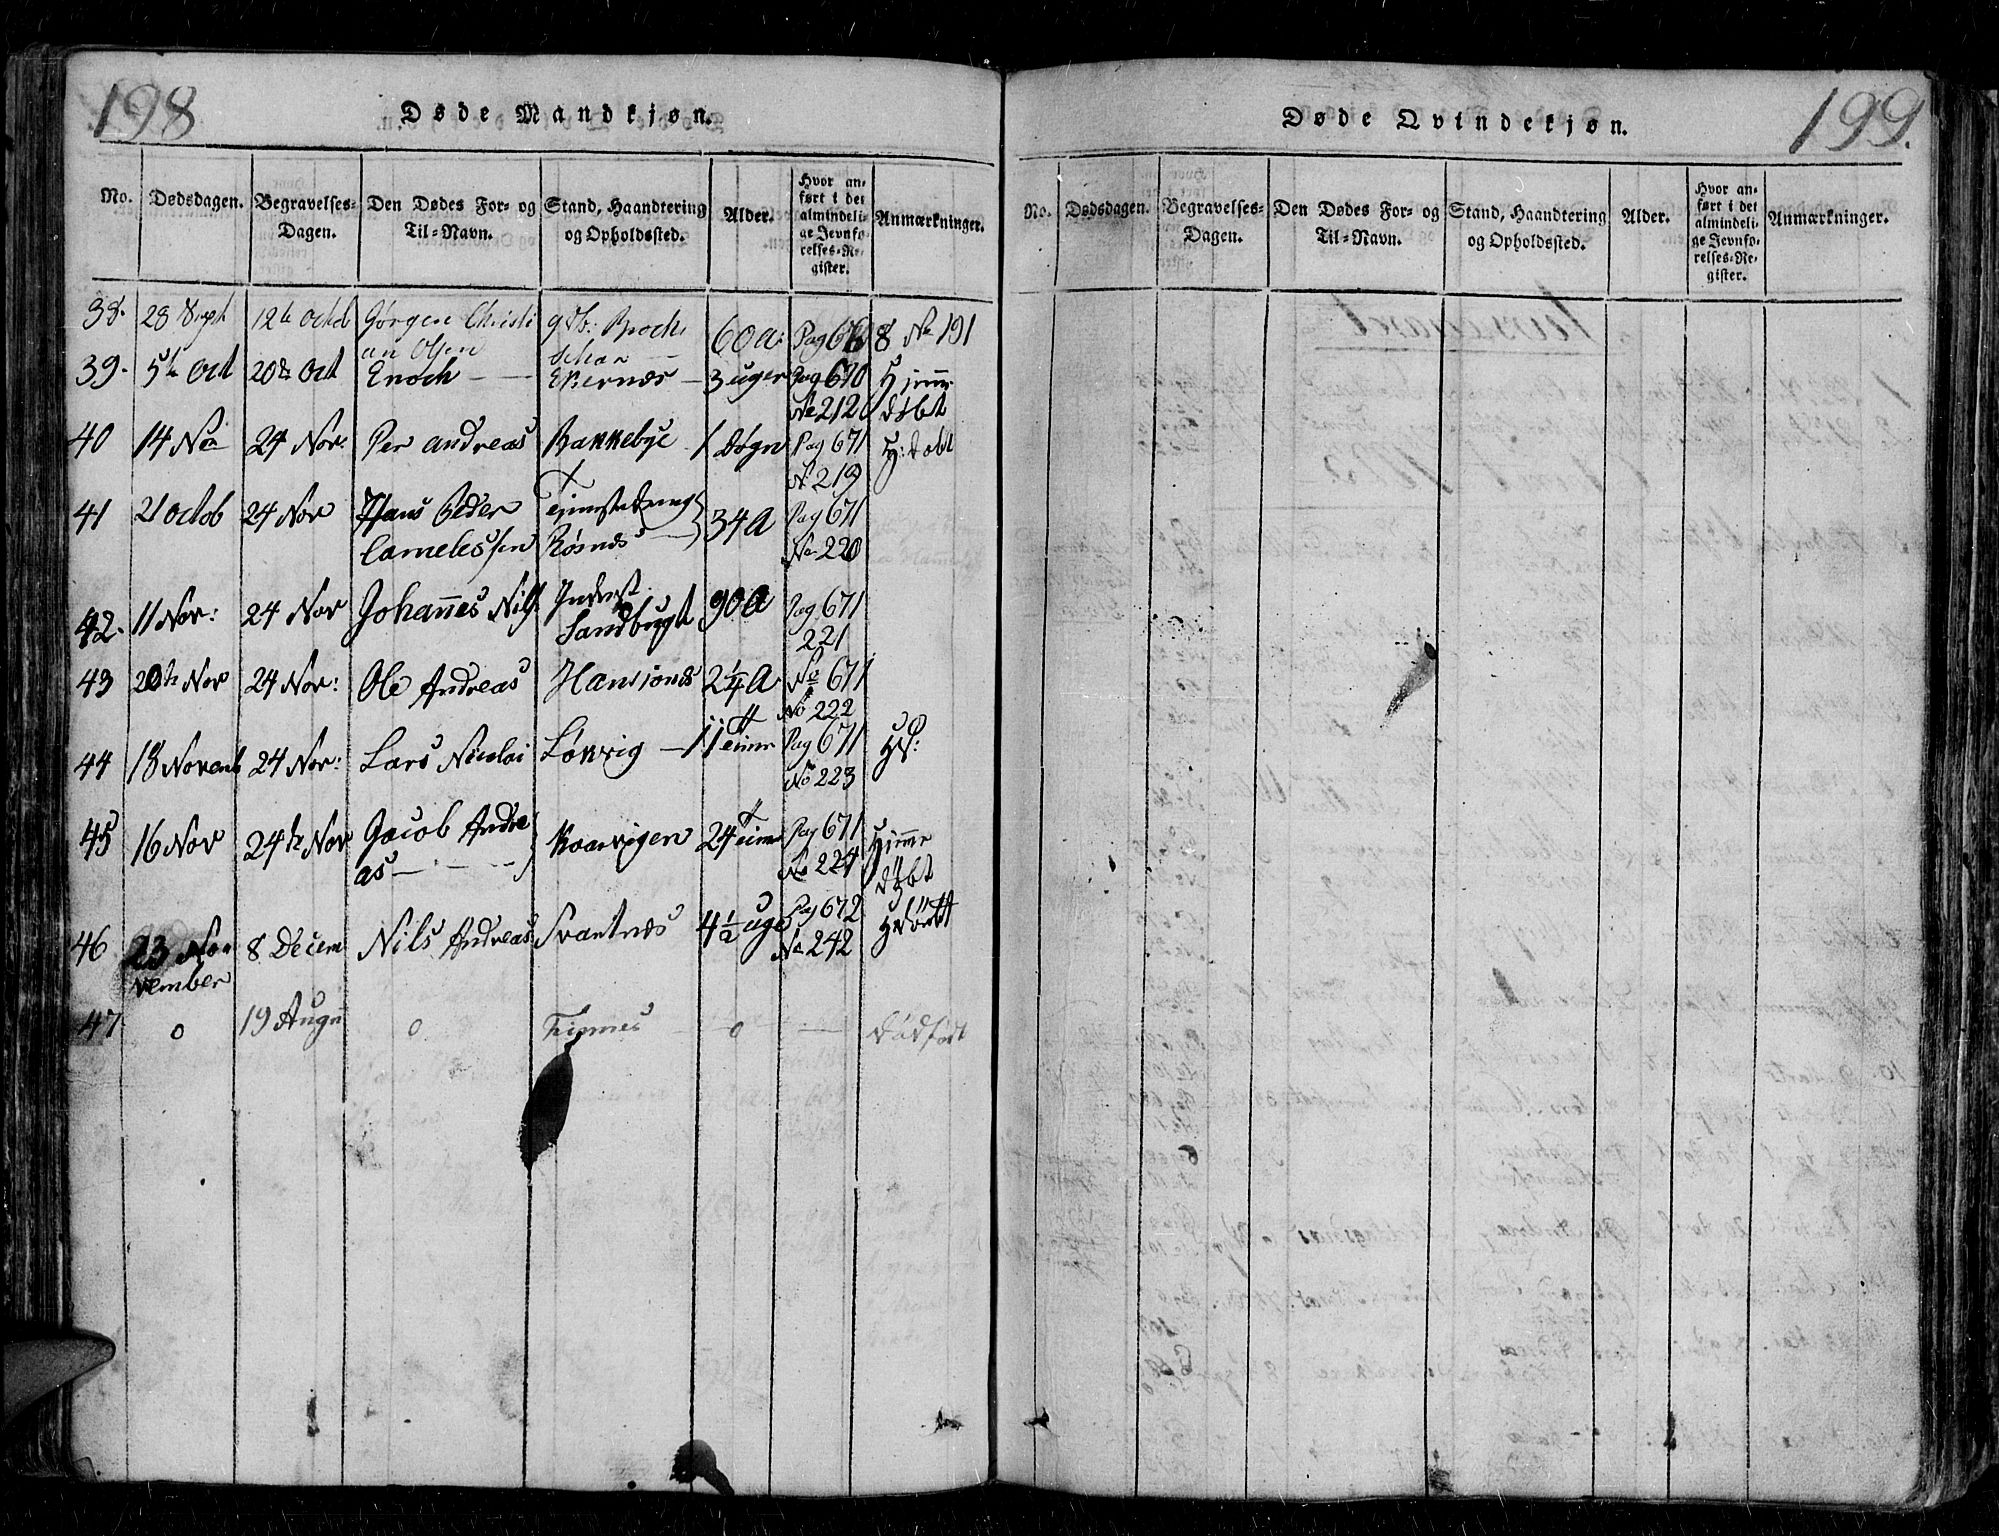 198
Døde Mandkjøn.
No. Dødsdagen. Begravelses-Dagen. Den Dødes For- og Til-Navn. Stand, Haandtering og Opholdssted. Alder. Hvor anført i det almindelige Jevnførelses-Register. Anmærkninger.
38. 28 Sept 12te Octob Gørgen Christi 60 a: Pag 676 8 No 191
an Olsen
39. 5te Oct 20de Oct Enoch 3 uger Pag 670 Hjemme
No 212 døbt
40 14 No 24 Nov: Per Andreas Bakkebye 1 Døgn Pag 671 H: døbt
No 219
41 21 Octob 24 Nov Hans Peder 34 A Pag 671
No 220
42. 11 Nov: 24 Nov Johannes Nils Inderst 90 A Pag 671
Sandbugt 221
43 20de Nov 24 Nov: Ole Andreas Hansjones 2 1/4 A No 671
No 222
44 18 Novemb 24 Nov: Lars Nicolai Løkvig Pag 671
No 223
45 16 Nov 24de Nov Jacob Andre 24 Pag 671 Hjemme
as No 224 døbt
46 23 No 8 Decem Nils Andreas Svartnes 4 1/2 uge Pag 672
vember No 242
47 o 19 August o o dødfødt
199.
Døde Qvindekjøn.
No. Dødsdagen. Begravelses-Dagen. Den Dødes For- og Til-Navn. Stand, Haandtering og Opholdssted. Alder. Hvor anført i det almindelige Jevnførelses-Register. Anmærkninger.